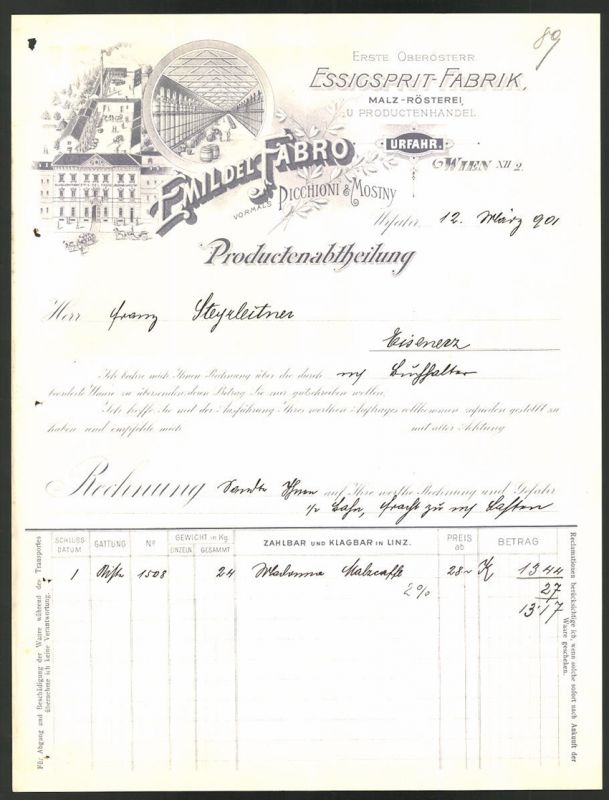 89
ERSTE OBERÖSTERR.
ESSIGSPRIT-FABRIK,
MALZ-RÖSTEREI,
U PRODUCTENHANDEL
URFAHR.
WIEN XII 2.
EMIL DEL FABRO
VORMALS PICCHIONI & MOSTNY
Urfahr, 12. März 901
Productenabtheilung
Herr Franz Steyrleitner
Eisenerz
Ich beehre mich Ihnen Rechnung über die durch m/ Buchhalter
beorderte Waare zu übersenden, deren Betrag Sie mir gutschreiben wollen.
Ich hoffe Sie mit der Ausführung Ihres werthen Auftrages vollkommen zufrieden gestellt zu
haben und empfehle mich mit aller Achtung
Rechnung Sandte Ihnen auf Ihre werthe Rechnung und Gefahr
p/ Bahn, Fracht zu m/ Lasten
SCHLUSS-DATUM GATTUNG No GEWICHT in Kg. EINZELN GESAMMT ZAHLBAR UND KLAGBAR IN LINZ. PREIS ab BETRAG
1 Kiste 1508 24 Madonna Malzcaffe 28 K 13 44
2% 27
13·17
Für Abgang und Beschädigung der Waare während des Transportes
übernehme ich keine Verantwortung.
Reclamationen berücksichtige ich, wenn solche sofort nach Ankunft der
Waare geschehen.